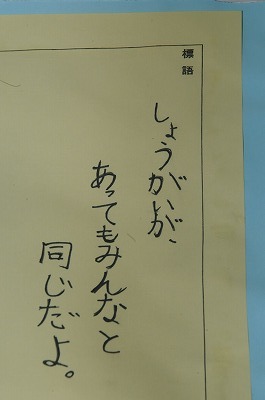 標語
しょうがいが、
あってもみんなと
同じだよ。